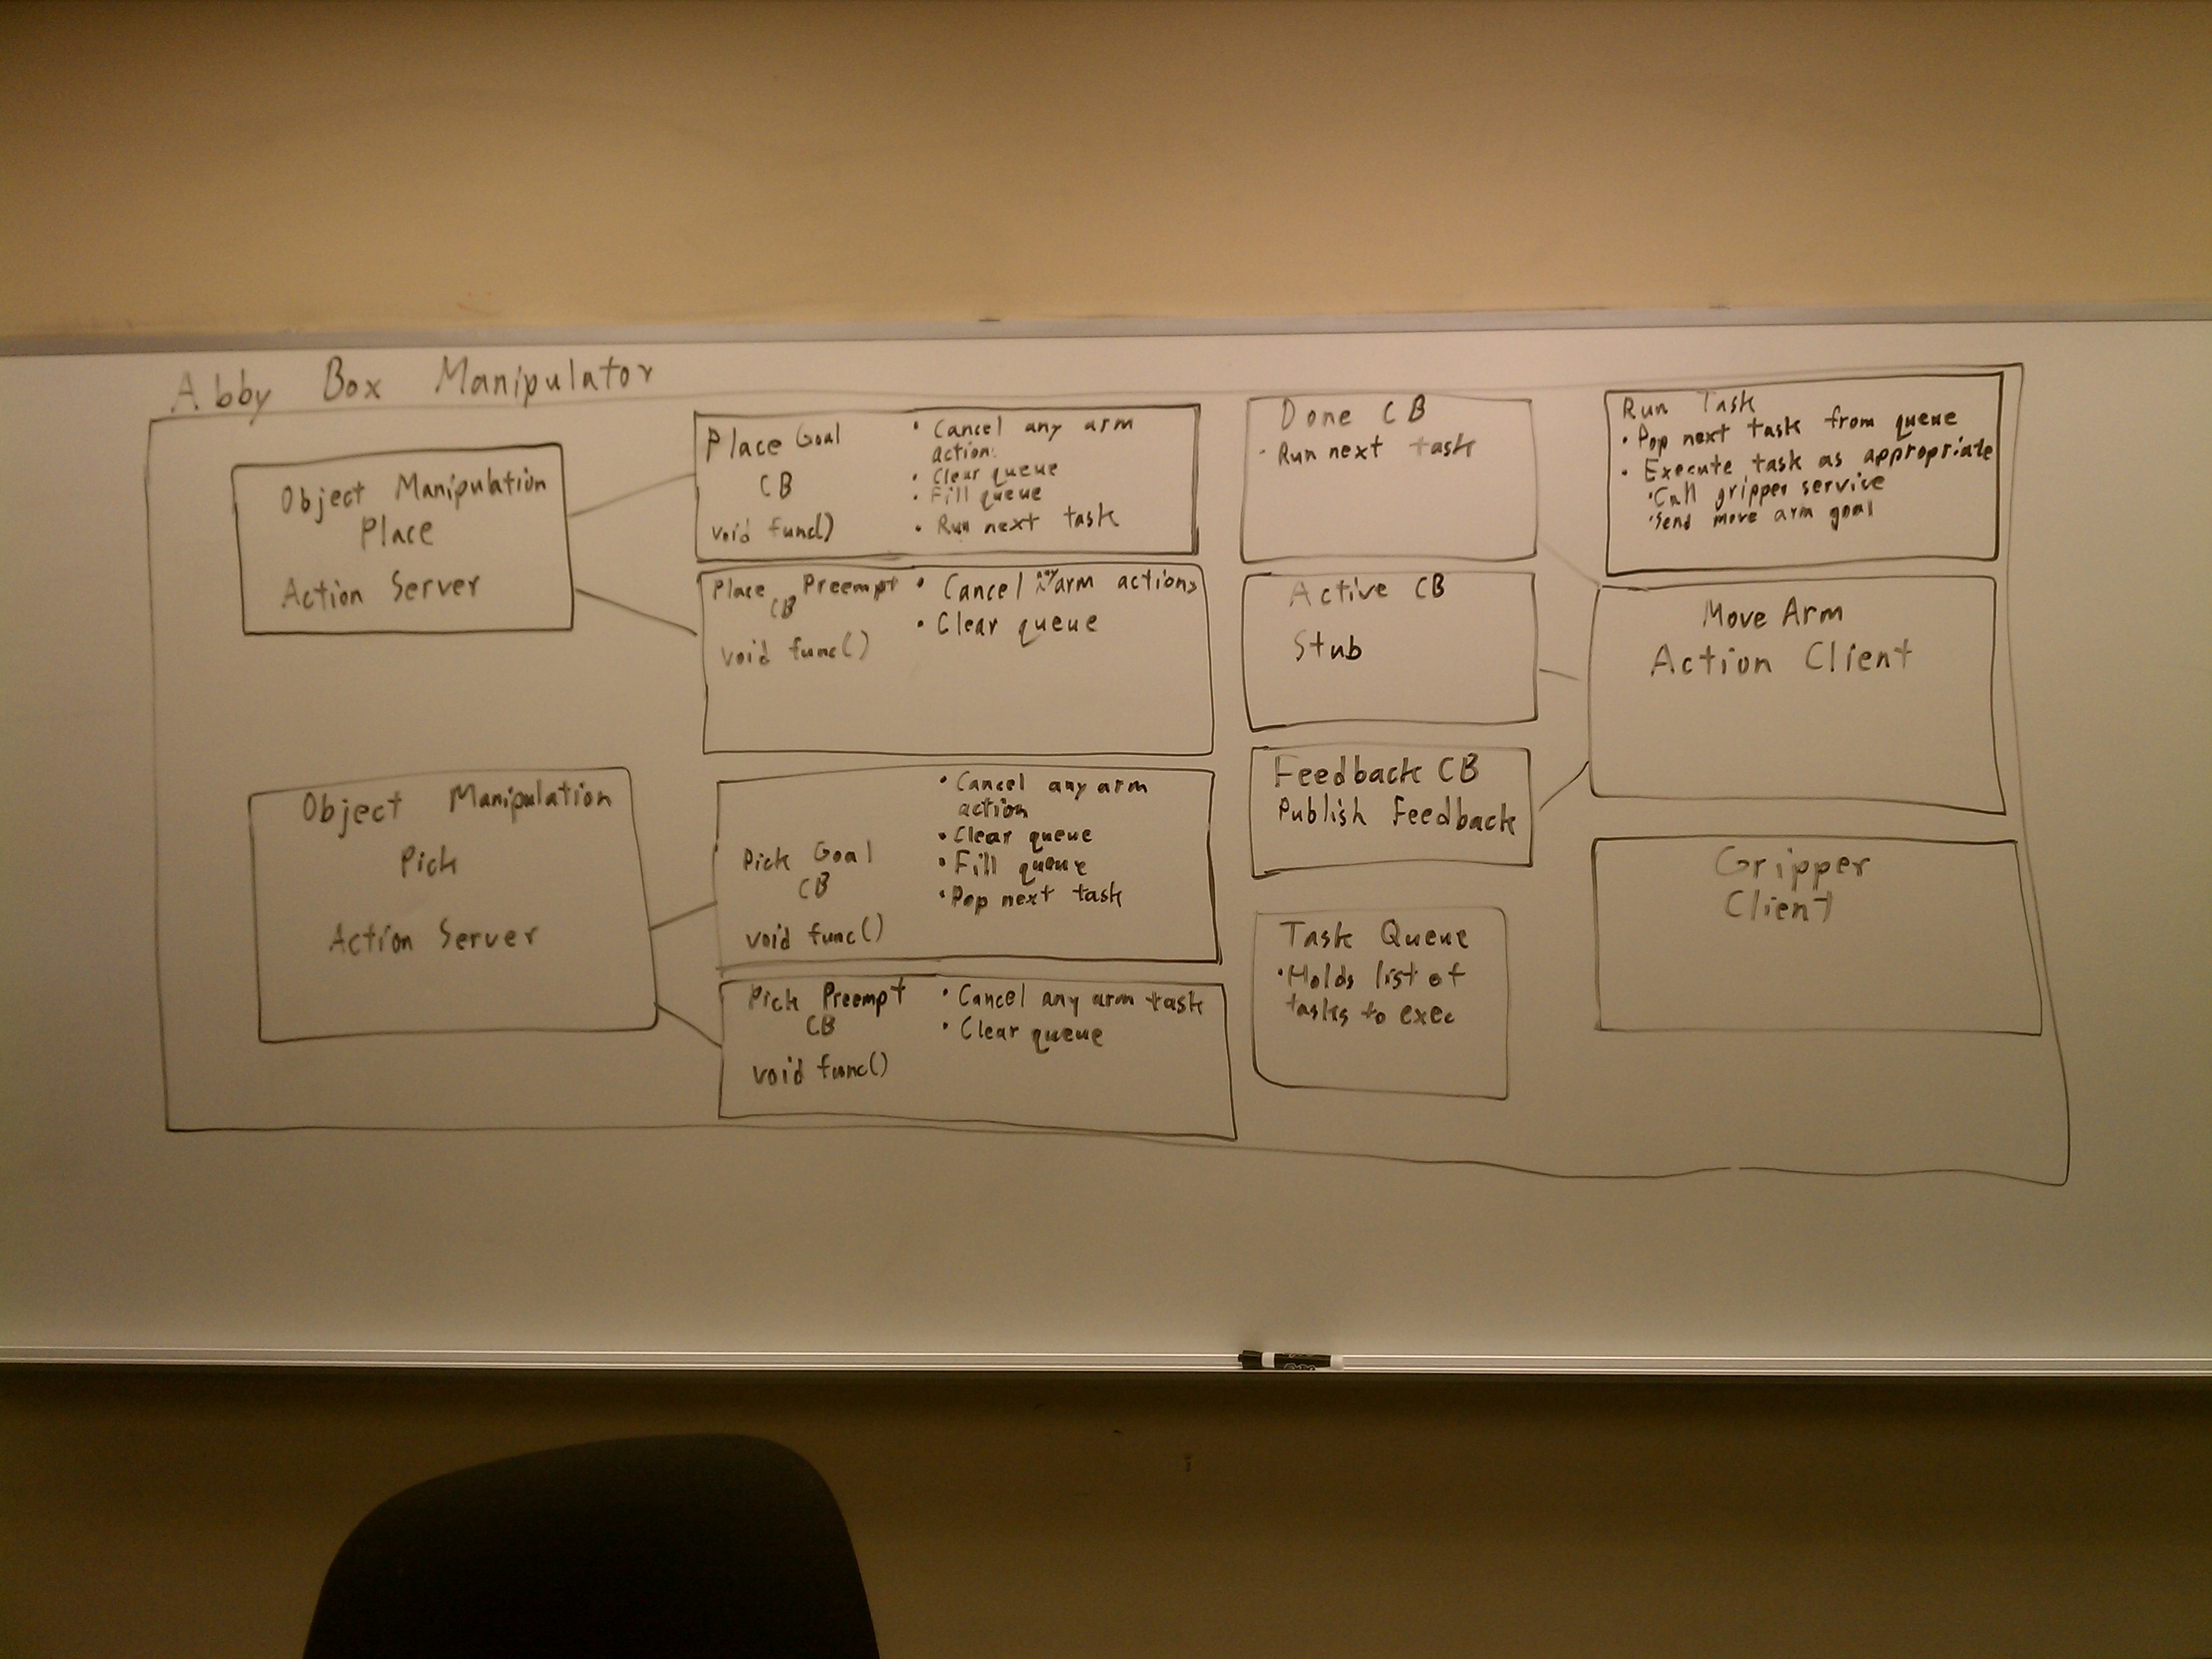 Abby Box Manipulator
Object Manipulation
Place
Action Server
Place Goal
CB
void func()
• Cancel any arm
action
• Clear queue
• Fill queue
• Run next task
Place Preempt
CB
void func()
• Cancel any arm actions
• Clear queue
Object Manipulation
Pick
Action Server
Pick Goal
CB
void func()
• Cancel any arm
action
• Clear queue
• Fill queue
• Pop next task
Pick Preempt
CB
void func()
• Cancel any arm task
• Clear queue
Done CB
• Run next task
Active CB
Stub
Feedback CB
Publish Feedback
Task Queue
• Holds list of
tasks to exec
Run Task
• Pop next task from queue
• Execute task as appropriate
• Call gripper service
• Send move arm goal
Move Arm
Action Client
Gripper
Client